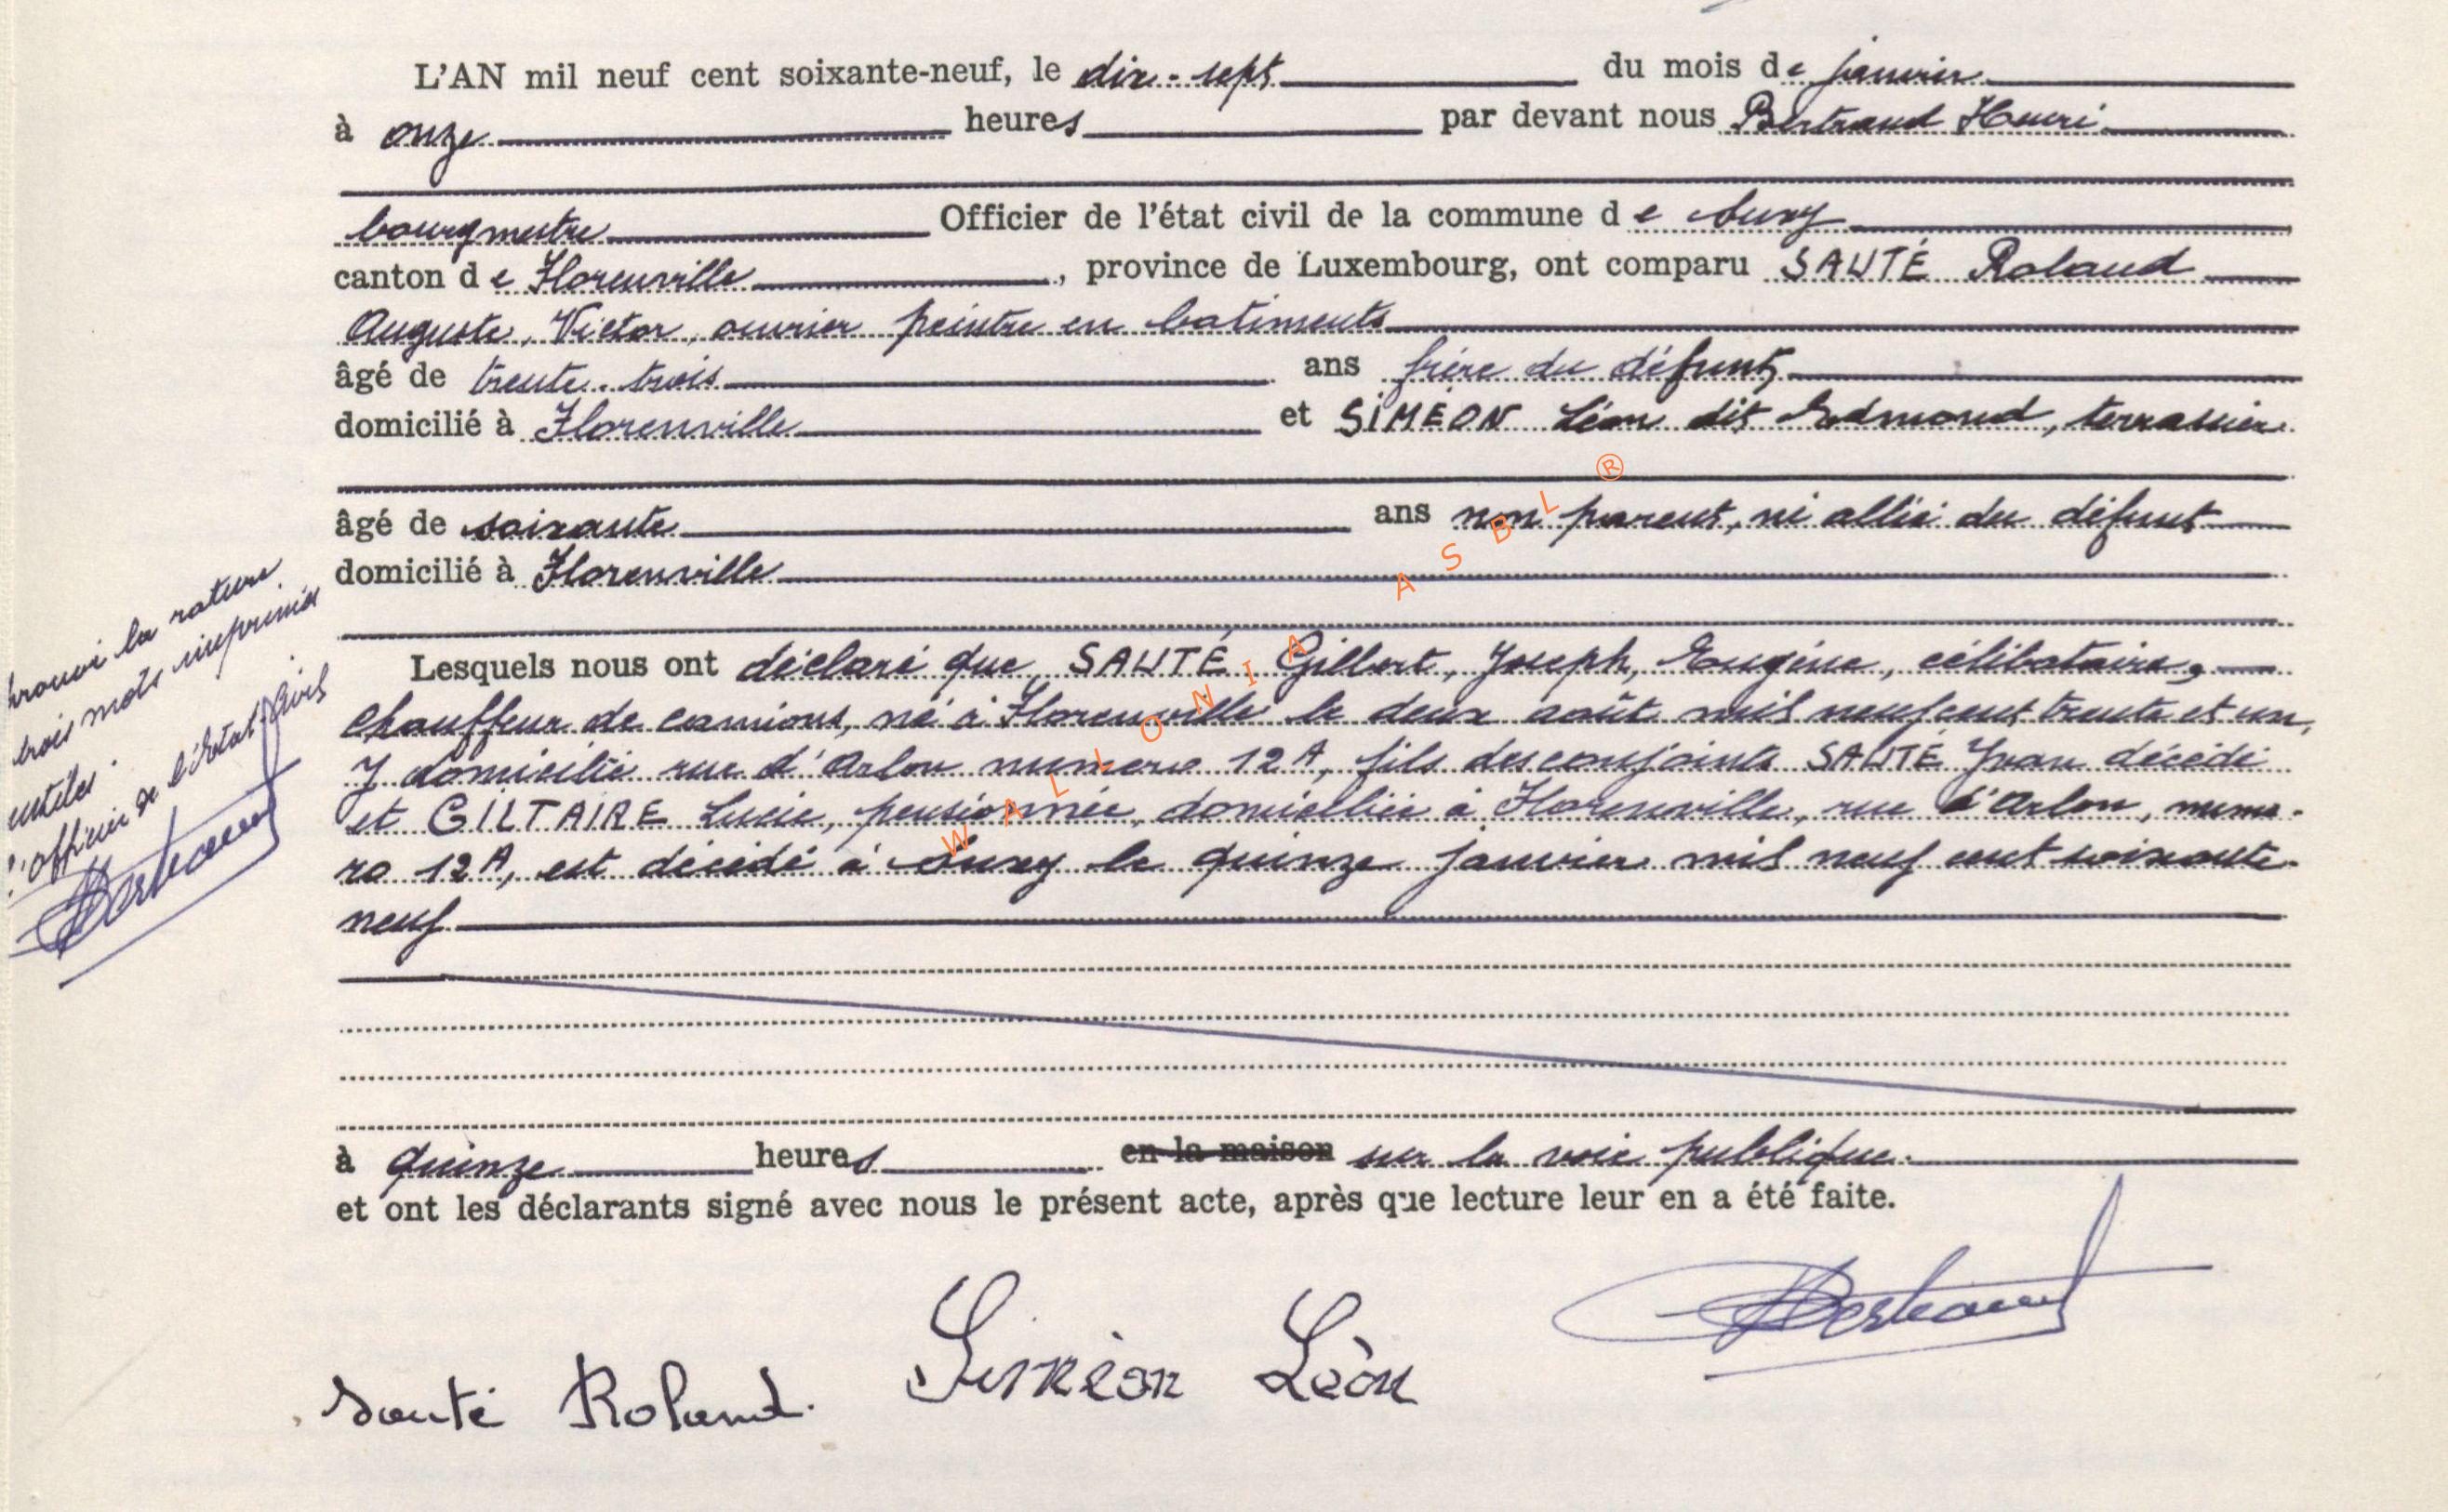 L'AN mil neuf cent soixante-neuf, le dix-sept du mois de janvier
à onze heures par devant nous Bertrand Henri
bourgmestre Officier de l'état civil de la commune de Suxy
canton de Florenville, province de Luxembourg, ont comparu SAUTÉ Roland
Auguste, Victor, ouvrier peintre en batiments
âgé de trente-trois ans frère du défunt
domicilié à Florenville et SIMÉON Léon dit Edmond, terrassier
âgé de soixante ans non parent, ni allié du défunt
domicilié à Florenville
Lesquels nous ont déclaré que SAUTÉ Gilbert, Joseph, Eugène, célibataire,
chauffeur de camions, né à Florenville le deux août mil neuf cent trente et un,
y domicilié rue d'Arlon numero 12A, fils des conjoints SAUTÉ Yvan décédé
et GILTAIRE Lucie, pensionnée, domiciliée à Florenville, rue d'Arlon, nume-
ro 12A, est décédé à Suxy le quinze janvier mil neuf cent soixante-
neuf
à quinze heures en la maison sur la voie publique.
et ont les déclarants signé avec nous le présent acte, après que lecture leur en a été faite.
Sauté Roland. Siméon Lèon HBertrand
la rature
trois mots imprimés
l'officier de l'état civil
HBertrand
WALLONIA ASBL ®